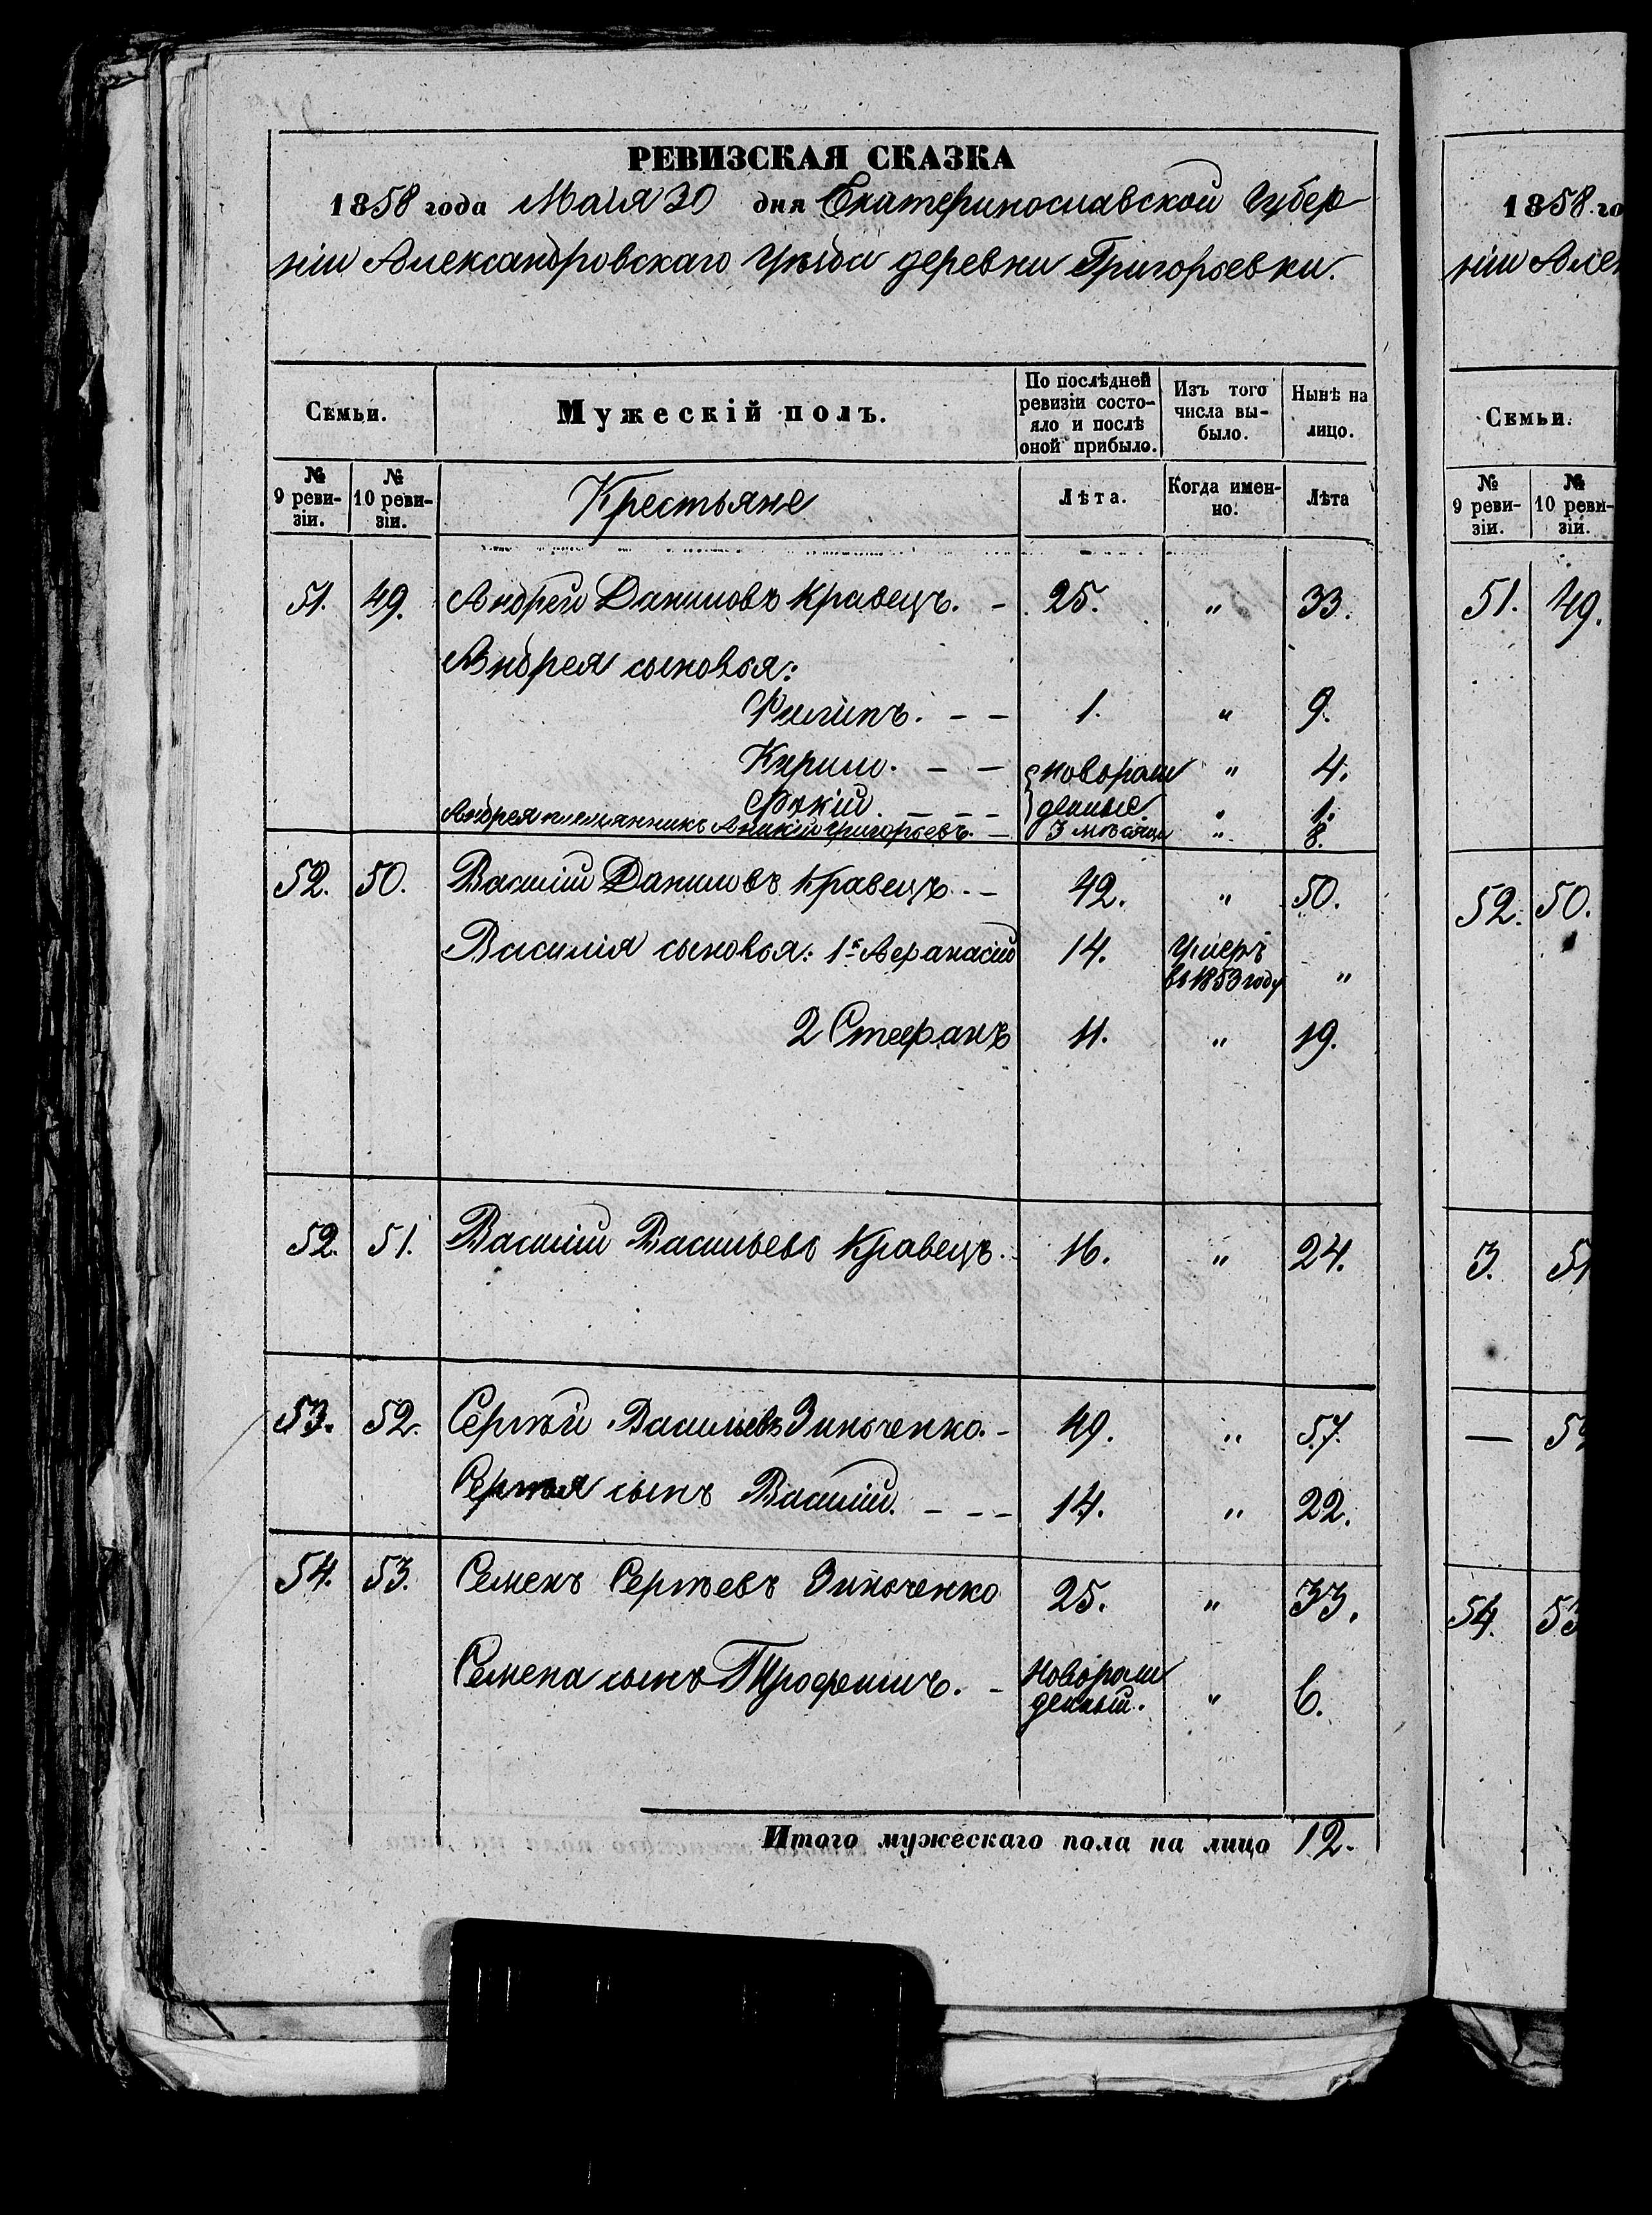 РЕВИЗСКАЯ СКАЗКА
1858 года Маія 30 дня Екатеринославской Губер
ніи Александровскаго Уѣзда деревни Григорьевки.
Семьи.
Мужескій полъ.
По послѣдней ревизіи состо-
яло и послѣ оной прибыло.
Изъ того числа вы-
было.
Нынѣ на лицо.
№ 9 реви-
зіи.
№ 10 реви-
зіи.
Крестьяне
Лѣта.
Когда имен-
но.
Лѣта
51. 49. Андрей Даниловъ Кравецъ. - 25. " 33.
Андрея сыновья:
Филипъ. - - 1. " 9.
Кирило. - - новорож " 4.
денные. " 1.
Андрея племянникъ Григорьевъ. - 3 мѣсяца " 8.
52. 50. Василій Даниловъ Кравецъ. - 42. " 50.
Василія сыновья: 1й Афанасій 14. Умеръ
въ 1853 году "
2 Стефанъ 11. " 19.
52. 51. Василій Васильевъ Кравецъ. 16. " 24.
53. 52. Сергѣй Васильевъ Зинченко. - 49. " 57.
Сергѣя сынъ Василій. - - - 14. " 22.
54. 53. Семенъ Сергѣевъ Зинченко 25. " 33.
Семена сынъ Трофимъ. - новорож
денный. " 6.
Итого мужескаго пола на лицо 12.
1858 го
ніи Але
Семьи.
№ 9 реви-
зіи.
№ 10 реви-
зіи.
51. 49.
52. 50.
3. 51
—
54. 53